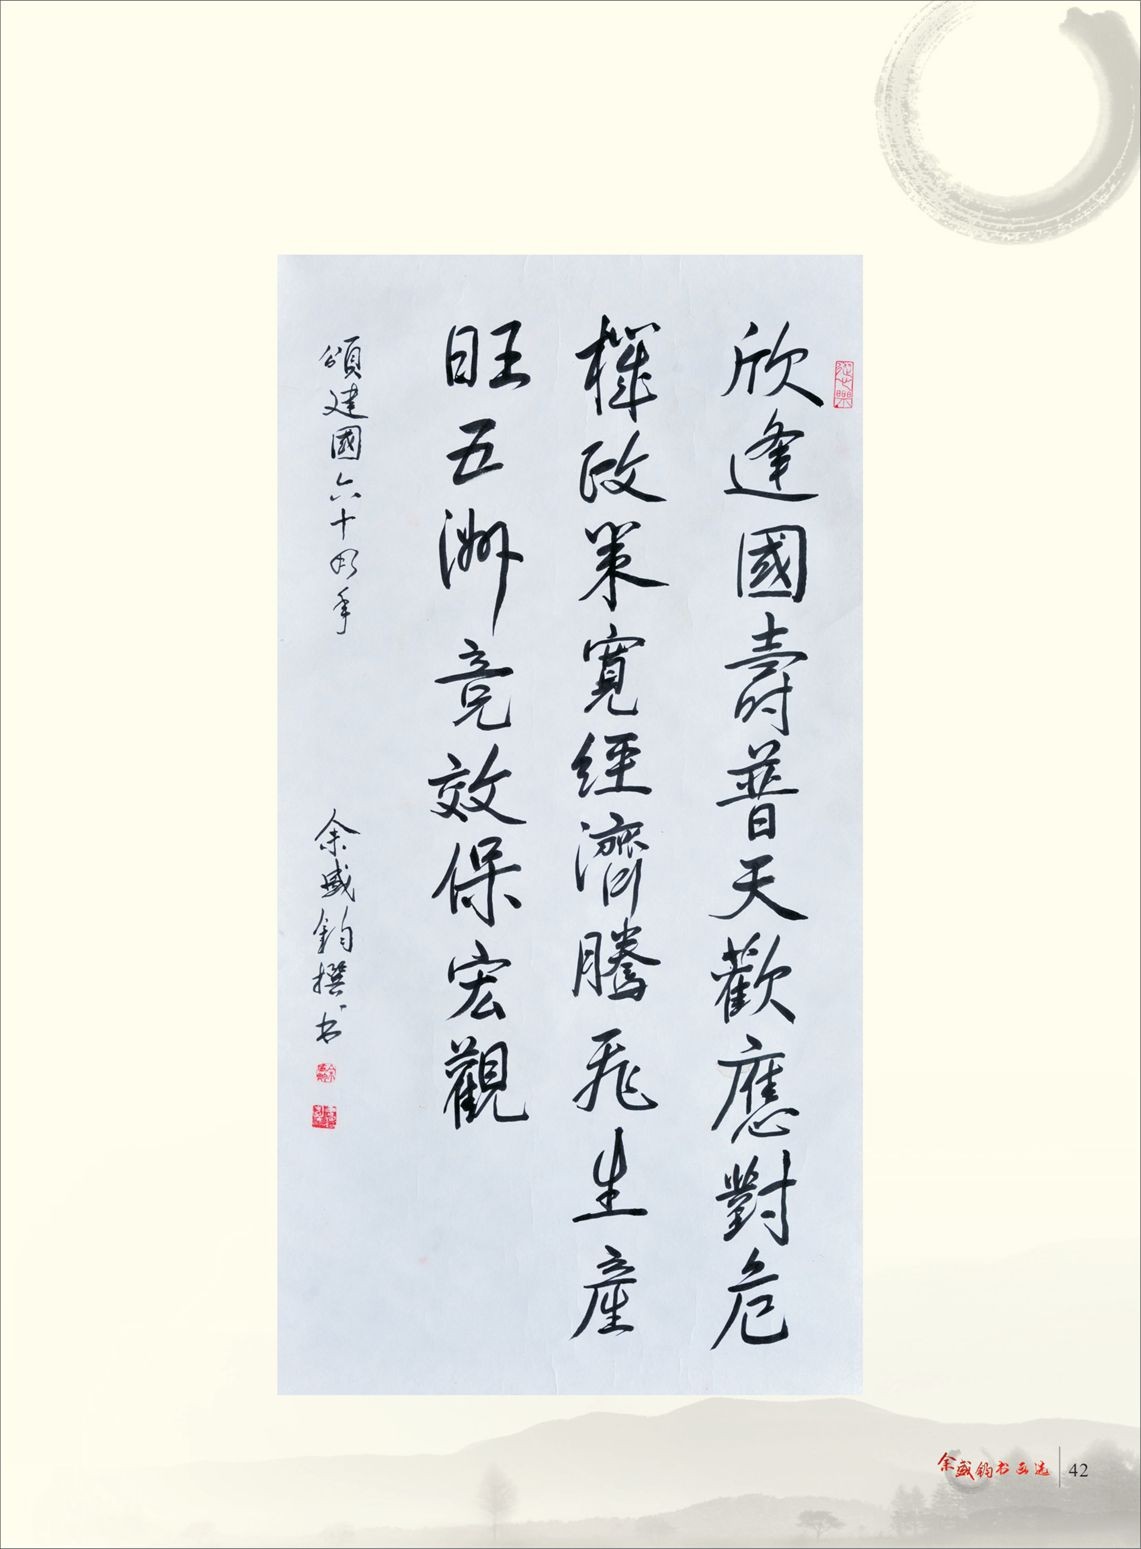 欣逢國壽普天歡應對危
機政策寬經濟騰飛生產
旺五洲竞效保宏觀
頌建國六十周年
余盛鈞撰书
余盛鈞书画选
42